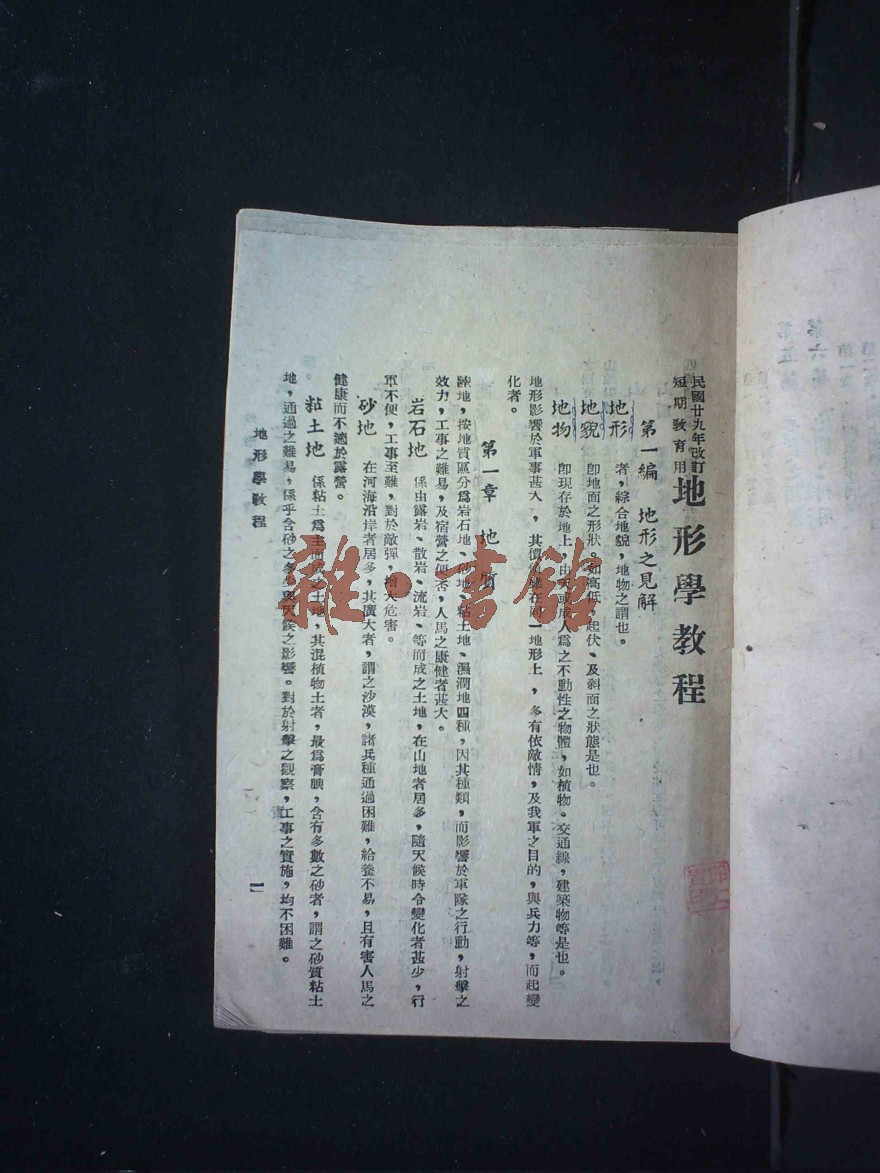 民國廿九年改訂
短期教育用
地形學教程
第一編　地形之見解
地形　者，綜合地貌，地物之謂也。
地貌　卽地面之形狀。如高低，起伏、及斜面之狀態是也。
地物　卽現存於地上，由天或人爲之不動性之物體，如植物。交通線，建築物等是也。
地形影響於軍事甚大，其價値雖在同一地形上，多有依敵情，及我軍之目的，與兵力等，而起變
化者。
第一章　地質
陸地，按地質區分爲岩石地、砂地、粘土地、濕潤地四種，因其種類，而影響於軍隊之行動，射擊之
效力，工事之難易，及宿營之便否，人馬之康健者甚大。
岩石地　係由露岩、散岩、流岩、等而成之土地，在山地者居多，隨天候時令變化者甚少，行
軍不便，工事至難，對於敵彈，增大危害。
砂地　在河海沿岸者居多，其廣大者，謂之沙漠，諸兵種通過困難，給養不易，且有害人馬之
健康而不適於露營。
粘土地　係粘土爲主而成之土地，其混植物土者，最爲膏腴，含有多數之砂者，謂之砂質粘土
地，通過之難易，係乎含砂之多少與天候之影響。對於射擊之觀察，工事之實施，均不困難。
地形學教程
一
雜·書館